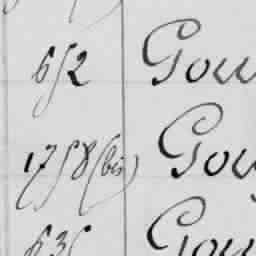 652 Gou
1758 (bis) Gou
635 Gou